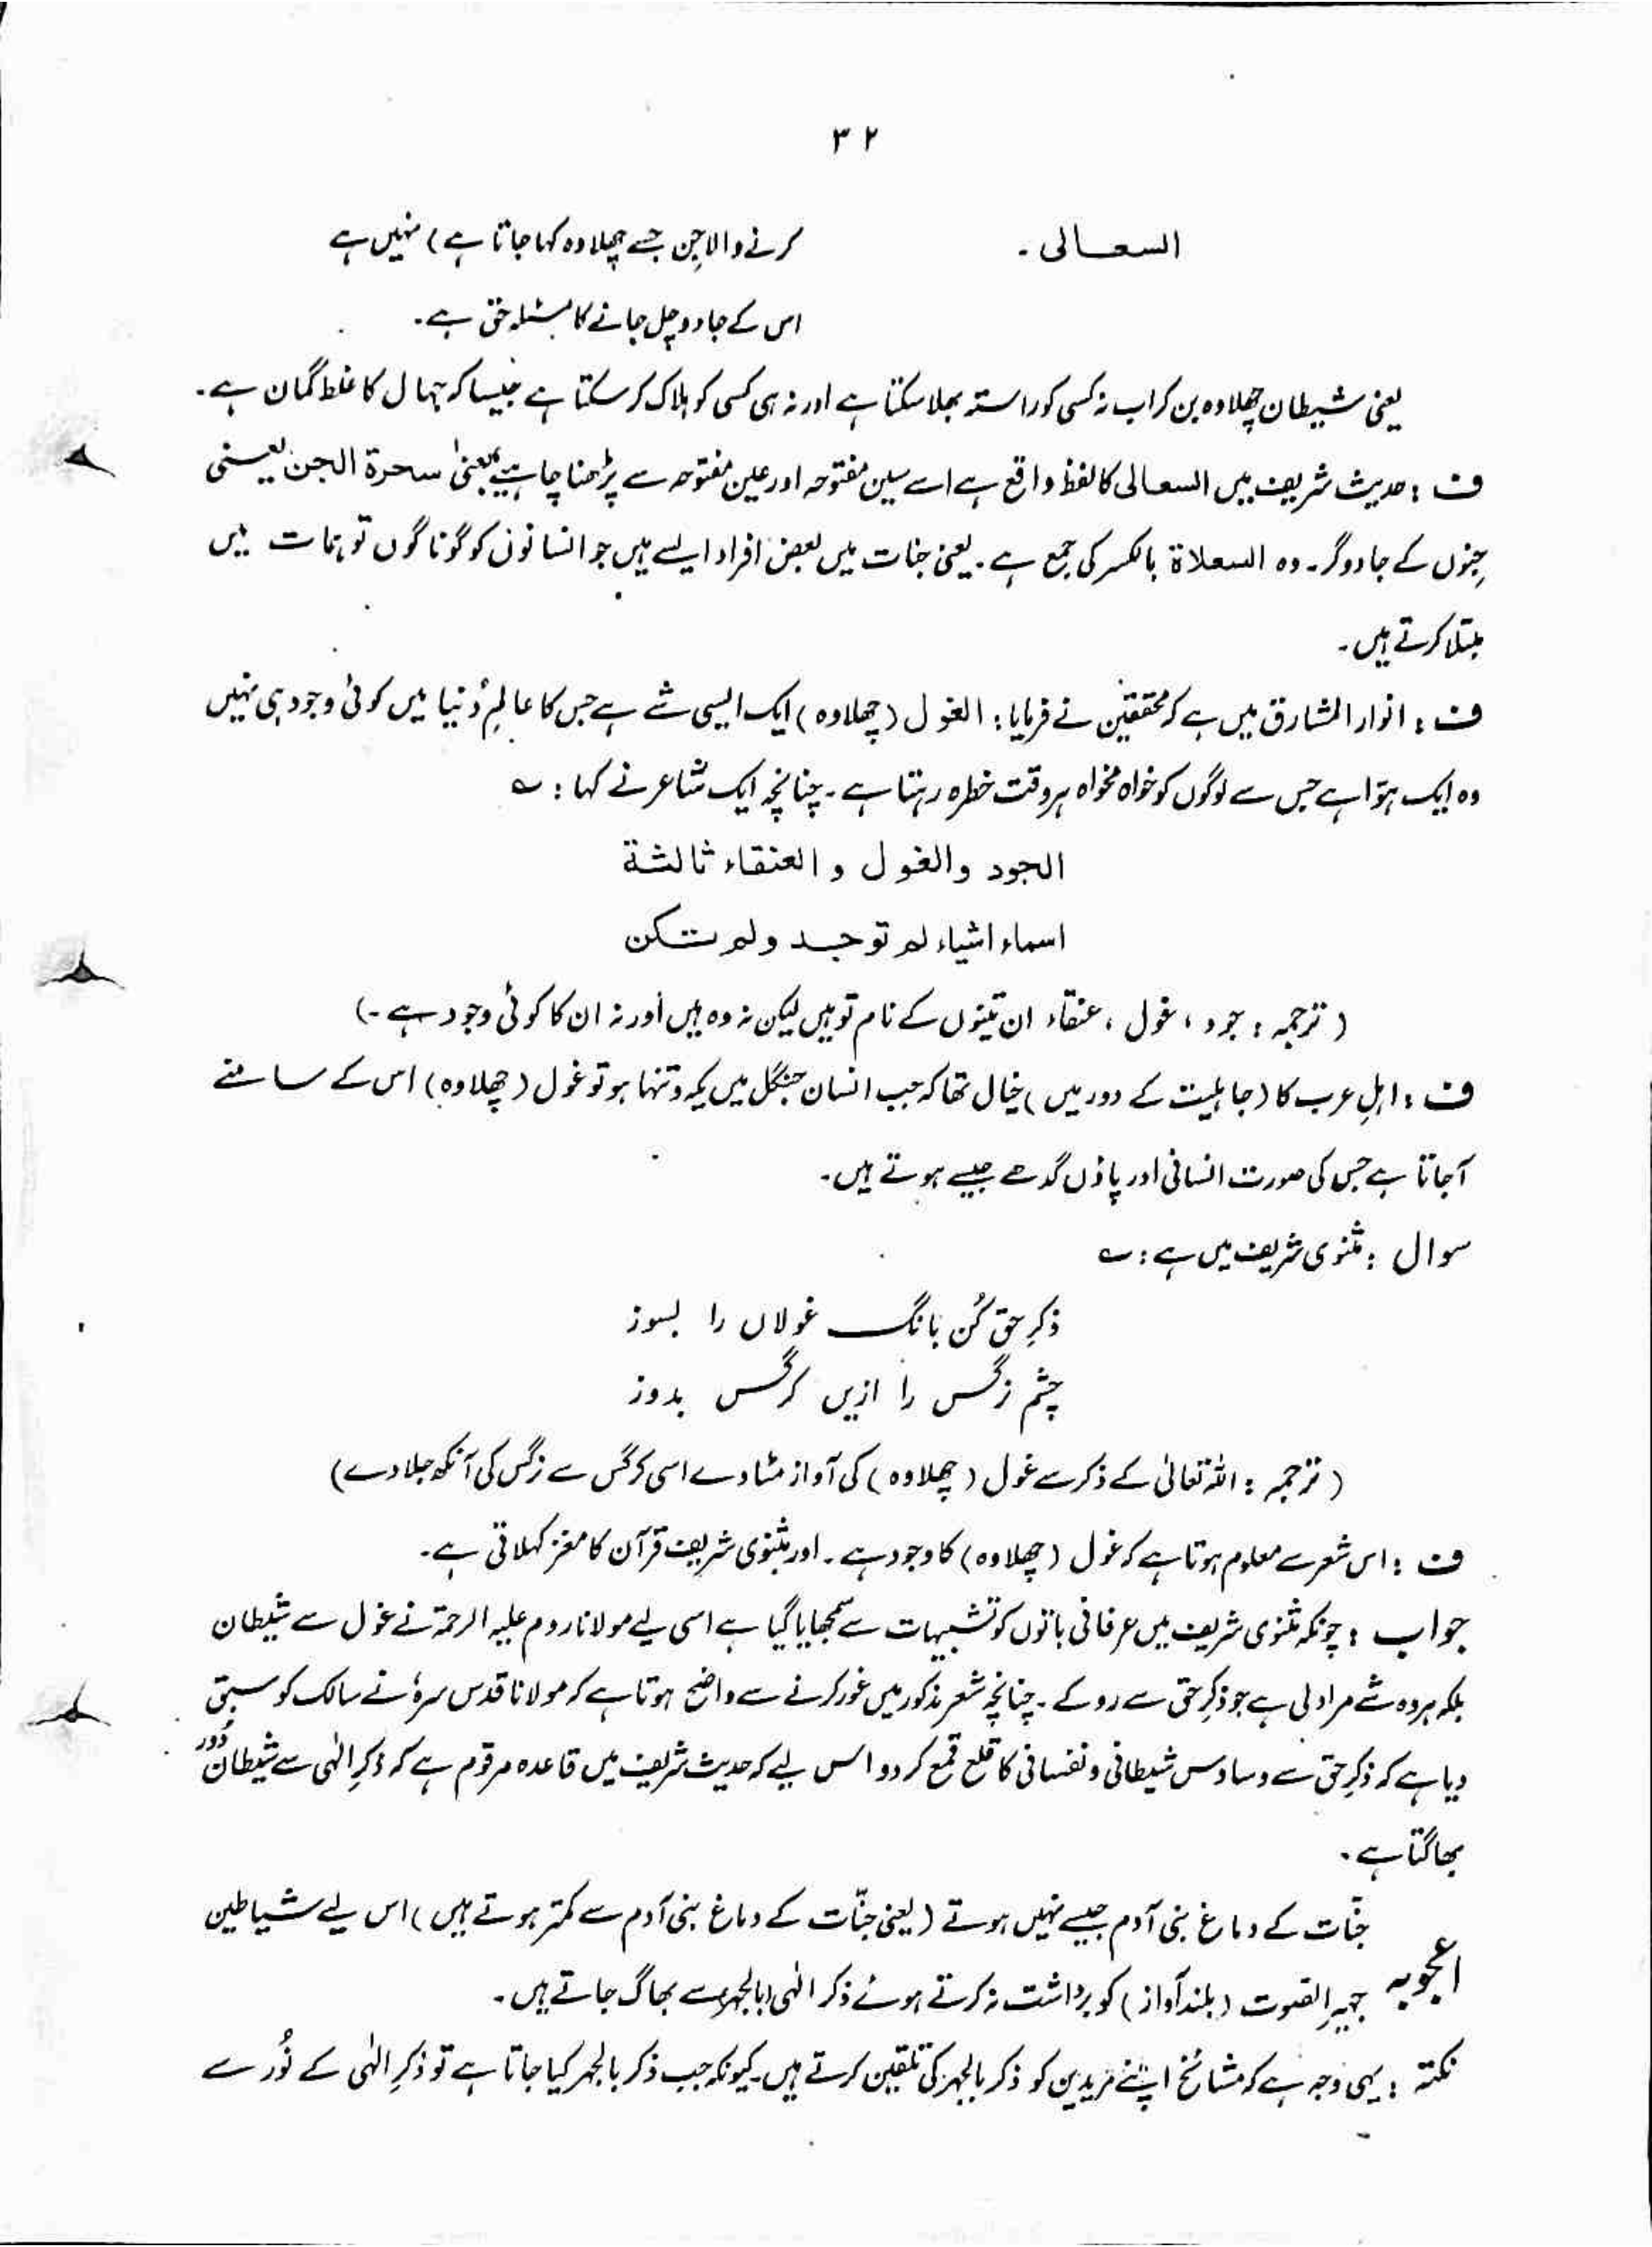 ۳۲
السعالی۔ کرنے والا جِن جسے چھلاوہ کہا جاتا ہے) نہیں ہے
اس کے جادو چل جانے کا مسئلہ حق ہے۔
یعنی شیطان چھلاوہ بن کر اب نہ کسی کو راستہ بھلا سکتا ہے اور نہ ہی کسی کو ہلاک کر سکتا ہے جیسا کہ جہال کا غلط گمان ہے۔
ف : حدیث شریف میں السعالی کا لفظ واقع ہے اسے سین مفتوحہ اور عین مفتوحہ سے پڑھنا چاہیے بمعنیٰ سحرۃ الجن یعنی
جِنوں کے جادوگر۔ وہ السعلاۃ بالکسر کی جمع ہے۔ یعنی جنات میں بعض افراد ایسے ہیں جو انسانوں کو گوناگوں توہمات میں
مبتلا کرتے ہیں۔
ف : انوار المشارق میں ہے کہ محققین نے فرمایا : الغول (چھلاوہ) ایک ایسی شے ہے جس کا عالمِ دُنیا میں کوئی وجود ہی نہیں
وہ ایک ہوّا ہے جس سے لوگوں کو خواہ مخواہ ہر وقت خطرہ رہتا ہے۔ چنانچہ ایک شاعر نے کہا : ؎
الجود والغول و العنقاء ثالثۃ
اسماء اشیاء لم توجد ولم تکن
(ترجمہ : جود ، غول ، عنقاء ان تینوں کے نام تو ہیں لیکن نہ وہ ہیں اور نہ ان کا کوئی وجود ہے۔)
ف : اہلِ عرب کا (جاہلیت کے دور میں) خیال تھا کہ جب انسان جنگل میں یکہ و تنہا ہو تو غول (چھلاوہ) اس کے سامنے
آجاتا ہے جس کی صورت انسانی اور پاؤں گدھے جیسے ہوتے ہیں۔
سوال : مثنوی شریف میں ہے : ؎
ذکرِ حق کُن بانگ غولاں را بسوز
چشم نرگس را ازیں کرگس بدوز
(ترجمہ : اللہ تعالیٰ کے ذکر سے غول (چھلاوہ) کی آواز مٹا دے اسی کرگس سے نرگس کی آنکھ جلا دے)
ف : اس شعر سے معلوم ہوتا ہے کہ غول (چھلاوہ) کا وجود ہے۔ اور مثنوی شریف قرآن کا مغز کہلاتی ہے۔
جواب : چونکہ مثنوی شریف میں عرفانی باتوں کو تشبیہات سے سمجھایا گیا ہے اسی لیے مولانا روم علیہ الرحمۃ نے غول سے شیطان
بلکہ ہر وہ شے مراد لی ہے جو ذکرِ حق سے روکے۔ چنانچہ شعر مذکور میں غور کرنے سے واضح ہوتا ہے کہ مولانا قدس سرہٗ نے سالک کو سبق
دیا ہے کہ ذکرِ حق سے وساوس شیطانی و نفسانی کا قلع قمع کر دو اس لیے کہ حدیث شریف میں قاعدہ مرقوم ہے کہ ذکرِ الٰہی سے شیطان دُور
بھاگتا ہے۔
اعجوبہ جنّات کے دماغ بنی آدم جیسے نہیں ہوتے (یعنی جنّات کے دماغ بنی آدم سے کمتر ہوتے ہیں) اس لیے شیاطین
جہیر الصّوت (بلند آواز) کو برداشت نہ کرتے ہوئے ذکر الٰہی (بالجہر) سے بھاگ جاتے ہیں۔
نکتہ : یہی وجہ ہے کہ مشائخ اپنے مریدین کو ذکر بالجہر کی تلقین کرتے ہیں۔ کیونکہ جب ذکر بالجہر کیا جاتا ہے تو ذکرِ الٰہی کے نُور سے